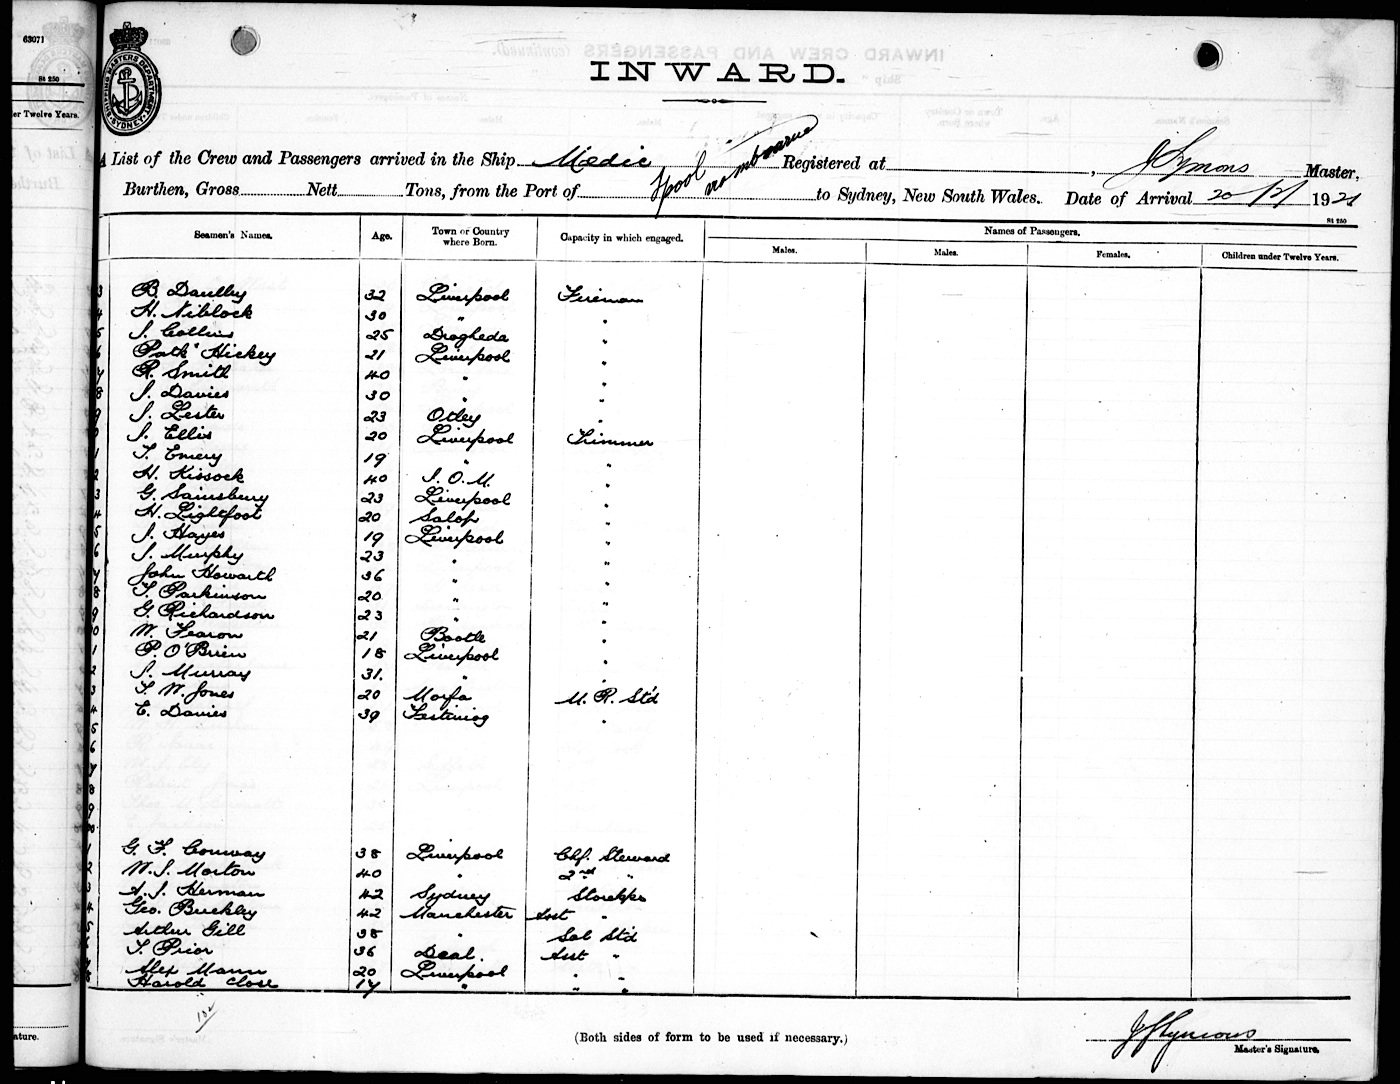 63071
St 250
er Twelve Years.
SHIPPING MASTERS DEPARTMENT SYDNEY
INWARD.
A List of the Crew and Passengers arrived in the Ship Medic Registered at , J Symons Master,
Burthen, Gross Nett Tons, from the Port of L'pool via Melbourne to Sydney, New South Wales. Date of Arrival 20/2/ 1921
St 250
Seamen's Names. Age. Town or Country where Born. Capacity in which engaged. Names of Passengers.
Males. Males. Females. Children under Twelve Years.
3 B. 32 Liverpool Fireman
4 H. Niblock 30 " "
5 J. Collins 25 Drogheda "
6 Patk Hickey 21 Liverpool "
7 R. Smith 40 " "
8 J. Davies 30 " "
9 J. Lester 23 Otley "
0 J. Ellis 20 Liverpool Trimmer
1 T. Emery 19 " "
2 H. Kissock 40 I. O. M. "
3 G. Sainsbury 23 Liverpool "
4 H. Lightfoot 20 Salop "
5 J. Hayes 19 Liverpool "
6 J. Murphy 23 " "
7 John Howarth 36 " "
8 T. Parkinson 20 " "
9 G. Richardson 23 " "
0 W. Fearon 21 Bootle "
1 P. O'Brien 18 Liverpool "
2 J. Murray 31. " "
3 T. W. Jones 20 Morfa M. R. Std
4 E. Davies 39 Festiniog "
5
6
7
8
9
0
1 G. F. Conway 38 Liverpool Chf. Steward
2 W. J. Morton 40 " 2nd "
3 A. J. Herman 42 Sydney Storekpr
4 Geo. Buckley 42 Manchester Asst "
5 Arthur Gill 38 " Sal Std
6 T. Prior 36 Deal. Asst "
7 Alex Mann 20 Liverpool " "
8 Harold Close 17 " " "
(Both sides of form to be used if necessary.)
J Symons
Master's Signature.
ature.